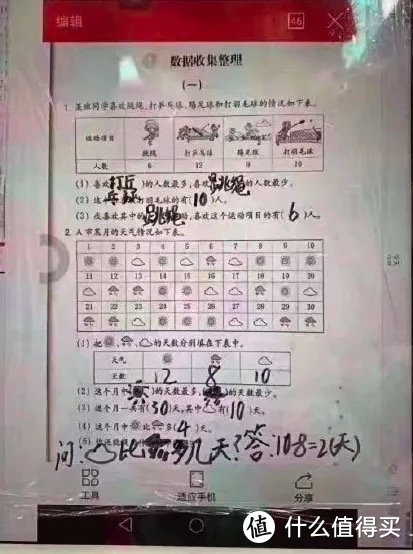 编辑
46
数据收集整理
(一)
1. 某班同学喜欢跳绳、打乒乓球、踢足球和打羽毛球的情况如下表。
运动项目 跳绳 打乒乓球 踢足球 打羽毛球
人数 6 12 9 10
(1) 喜欢(打乒乓)的人数最多,喜欢(跳绳)的人数最少。
(2) 这 打羽毛球的有(10)人。
(3) 在喜欢其中的(跳绳) ,喜欢这个运动项目的有(6)人。
2. A市某月的天气情况如下表。
1 2 3 4 5 6 7 8 9 10
11 12 13 14 15 16 17 18 19 20
21 22 23 24 25 26 27 28 29 30
(1) 把 、 、 的天数分别填在下表中。
天气
天数 12 8 10
(2) 这个月中( )的天数最多,( )的天数最少。
(3) 这个月一共有(30)天,其中 有(10)天。
(4) 这个月中 比 多(4)天。
(5)
问: 比 多几天?答:10-8=2(天)
工具
适应手机
分享
值 什么值得买